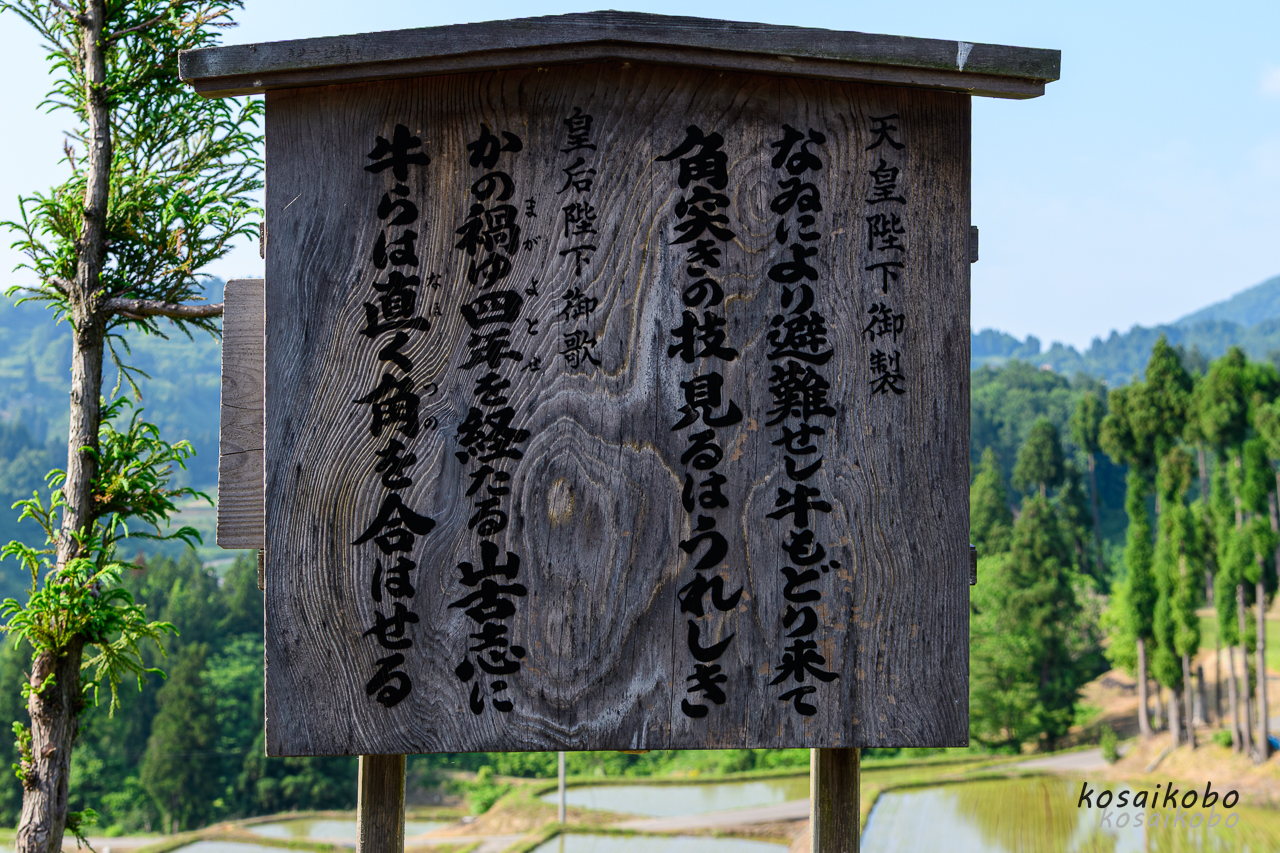 天皇陛下御製
なゐにより避難せし牛もどり来て
角突きの技見るはうれしき
皇后陛下御歌
かの禍ゆ四年を経たる山古志に
まが よとせ
牛らは直く角を合はせる
なほ つの
kosaikobo
kosaikobo